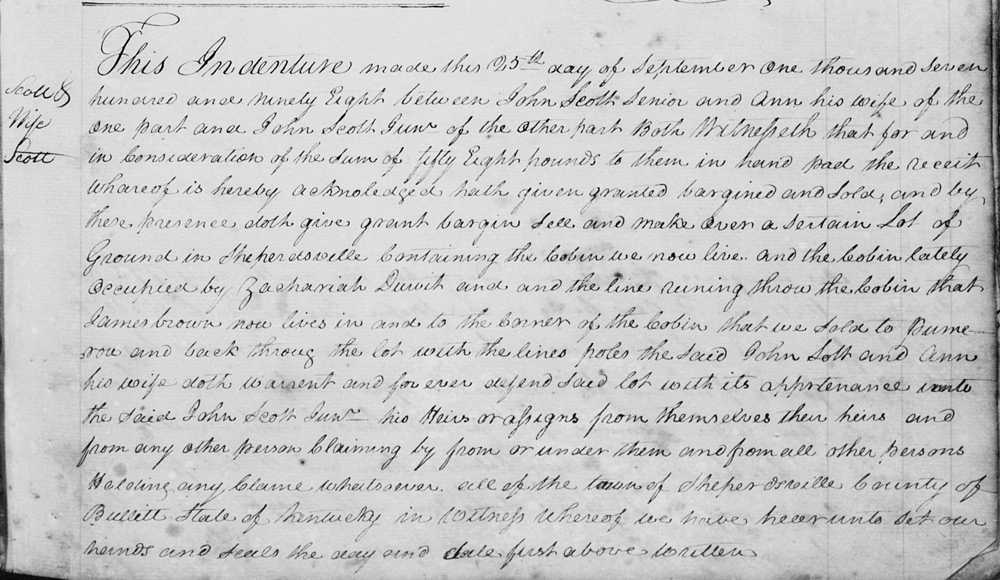 Scott &
Wife
Scott
This Indenture made this 25th day of September one thousand seven
hundred and ninety Eight between John Scott Senior and Ann his wife of the
one part and John Scott Junr of the other part Both Witnesseth that for and
in Consideration of the sum of fifty Eight pounds to them in hand pad the receit
whareof is hereby acknoledged hath given granted bargined and sold, and by
these presence doth give grant bargin sell and make over a sertain Lot of
Ground in Sheperdsville Containing the Cobin we now live and the Cobin lately
occupied by Zachariah Duwit and and the line runing throw the Cobin that
James brown now lives in and to the Corner of the Cobin that we sold to Bume-
rou and back throug the lot with the lines poles the said John Sott and Ann
his wife doth warrent and for ever defend said lot with its apprtenance unto
the said John Scott Junr his Heirs or assigns from themselves their heirs and
from any other person Claiming by from or under them and from all other persons
Holding any Claime whatsoever. all of the town of Sheperdsville County of
Bullitt State of Kentucky in Witness whereof we have heerunto set our
hands and seals the day and date first above written